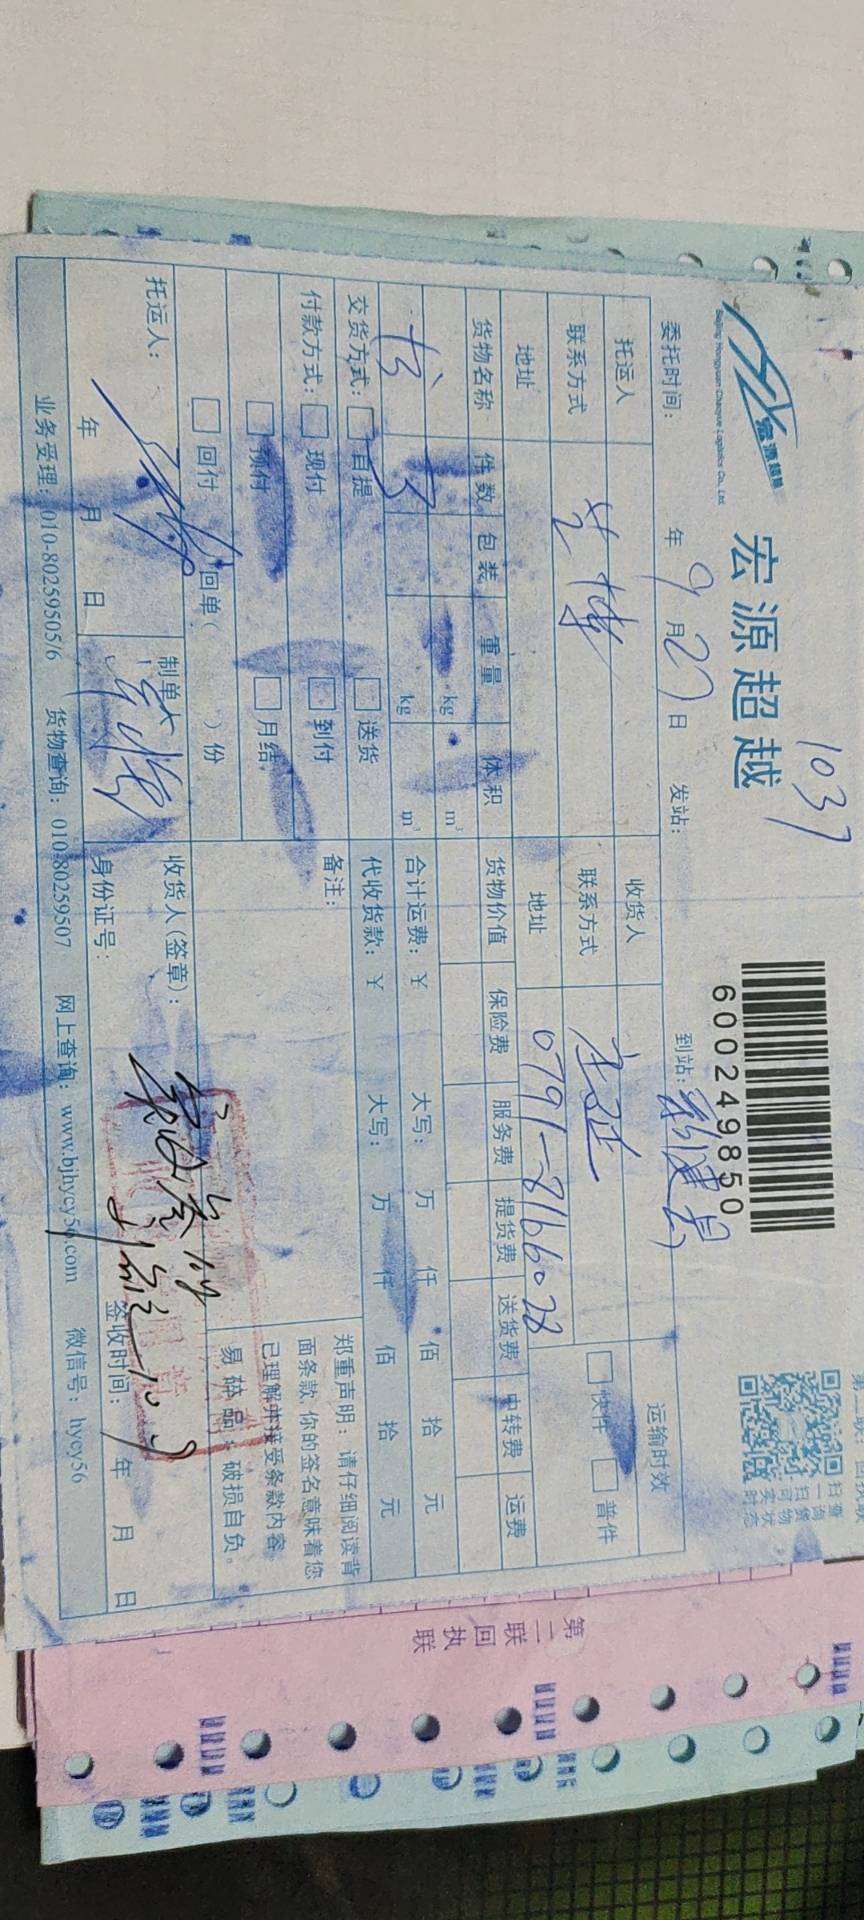 1037
宏源超越
宏源超越
Beijing Hongyuan Chaoyue Logistics Co., Ltd.
600249850
扫一扫
查询货物
实时状态
委托时间: 年 9 月 27 日 发站: 到站:
托运人 收货人 运输时效
联系方式 联系方式 快件 普件
地址 地址 0791-8166028
货物名称 件数 包装 重量 体积 货物价值 保险费 服务费 提货费 送货费 中转费 运费
kg m³
3 kg m³ 合计运费: ¥ 大写: 万 仟 佰 拾 元
交货方式: 自提 送货 代收货款: ¥ 大写: 万 仟 佰 拾 元
付款方式: 现付 到付 备注:
预付 月结
回付 回单( )份
郑重声明: 请仔细阅读背
面条款, 你的签名意味着您
已理解并接受条款内容。
易碎品, 破损自负。
托运人: 制单人 收货人(签章):
年 月 日 身份证号: 签收时间: 年 月 日
10.9
业务受理: 010-80259505/6 货物查询: 010-80259507 网上查询: www.bjhycy56.com 微信号: hycy56
第二联回执联